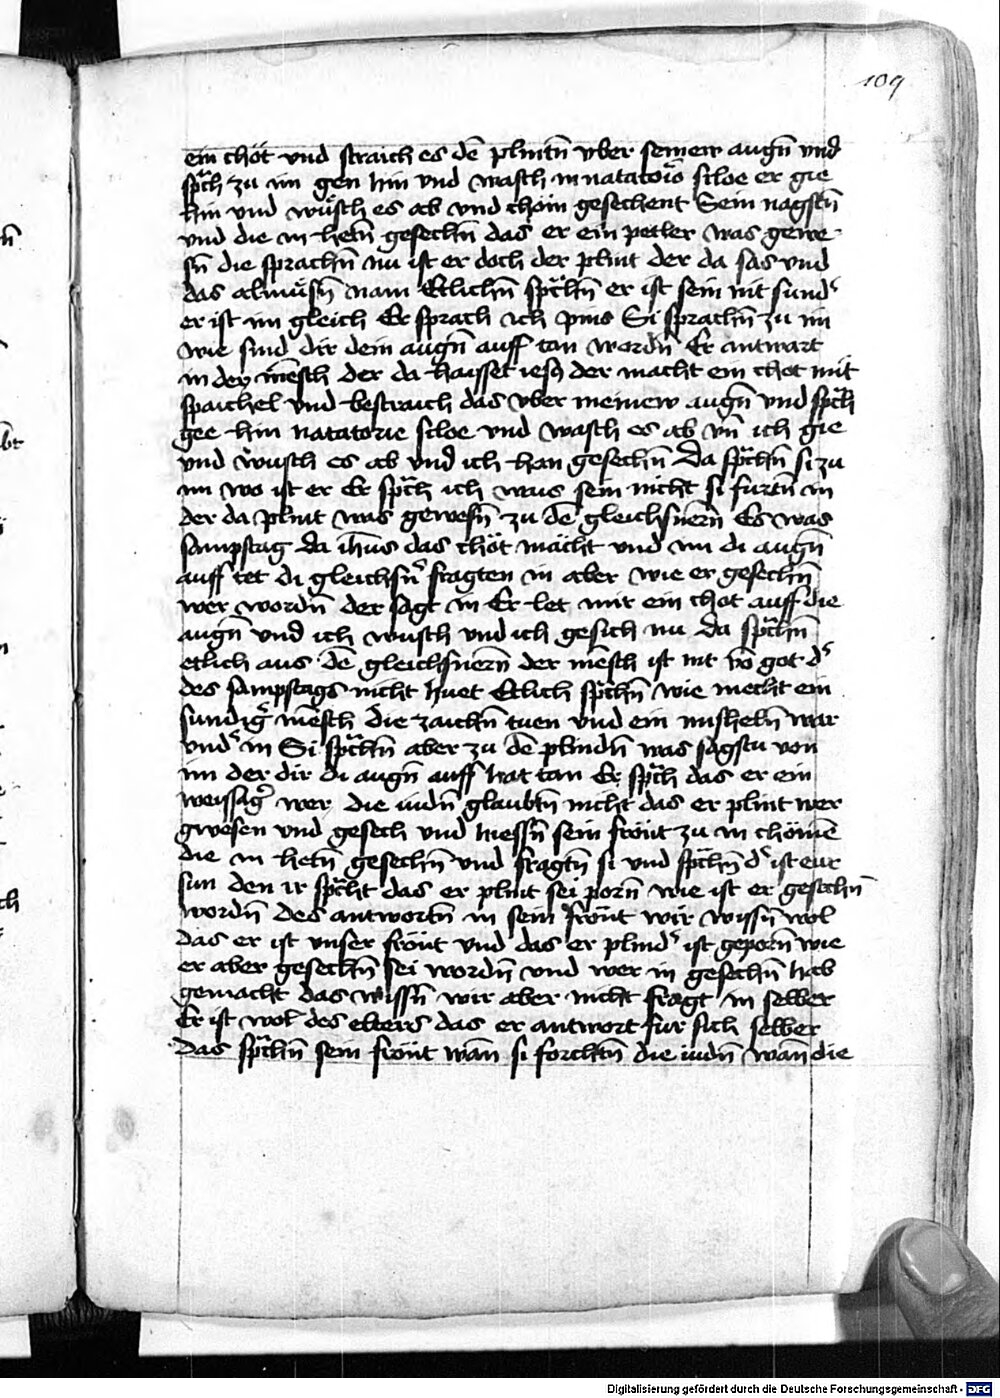 109
ein chöt vnd straich es dē plintn̄ vber seinew augn̄ vnd
spͣch zu im gen hin vnd wasch in natatoͣio siloe er gie
hin vnd wuͤsch es ab vnd chöm gesechent Sein nagstn̄
vnd die in hetn̄ gesechn̄ das er ein petler was gewe
sn̄ die sprachn̄ nu ist er doch der plint der da sas vnd
das almuͤsn̄ nam Etlichn̄ spͣchn̄ er ist sein nit sundʾ
er ist im gleich Er sprach ich pins Si sprachn̄ zu im
wie sind dir dein augn̄ auff tan wordn̄ Er antwart
in der mēsch der da haisset iesꝰ der macht ein chot mit
spaichel vnd bestraich das vber meinew augn̄ vnd spͣch
gee hin natatorie siloe vnd wasch es ab vn̄ ich gie
vnd wusch es ab vnd ich han gesechn̄ Da spͣchn̄ si zu
im wo ist er Er spͣch ich wais sein nicht si furtn̄ in
der da plint was gewesn̄ zu dē gleichsnern̄ Es was
sampstag da ih̄us das chöt mächt vnd im di augn̄
auff tet di gleichsnʾ fragten in aber wie er gesechn̄
wer wordn̄ der sagt in Er let mir ein chot auff die
augn̄ vnd ich wusch vnd ich gesich nu Da spͣchn̄
etlich aus dē gleichsnern̄ der mēsch ist nit vō got dʾ
des sampstags nicht huet Etlich spͣchn̄ wie mecht ein
sundigʾ mēsch die zaichn̄ tuen vnd ein misheln̄ war
vndʾ in Si spͣchn̄ aber zu dē plindn̄ was sagstu von
im der dir di augn̄ auff hat tan Er spͣch das er ein
weissagʾ wer die iudn̄ glaubtn̄ nicht das er plint wer
gwesen vnd gesech vnd hiessn̄ sein fröut zu in chömē
die in hetn̄ gesechn̄ vnd fragtn̄ si vnd spͣchn̄ dʾ ist eur
sun den ir spͣcht das er plint sei porn̄ wie ist er gesechn̄
wordn̄ des antwortn̄ in sein fröut wir wissn̄ wol
das er ist vnser fröut vnd das er plindʾ ist geporn̄ wie
er aber gesechn̄ sei wordn̄ vnd wer in gesechn̄ hab
gemacht das wissn̄ wir aber nicht fragt in selber
Er ist wol des elters das er antwort fur sich selber
Das spͣchn̄ sein fröut wan̄ si forchtn̄ die iudn̄ wan̄ die
Digitalisierung gefördert durch die Deutsche Forschungsgemeinschaft - DFG